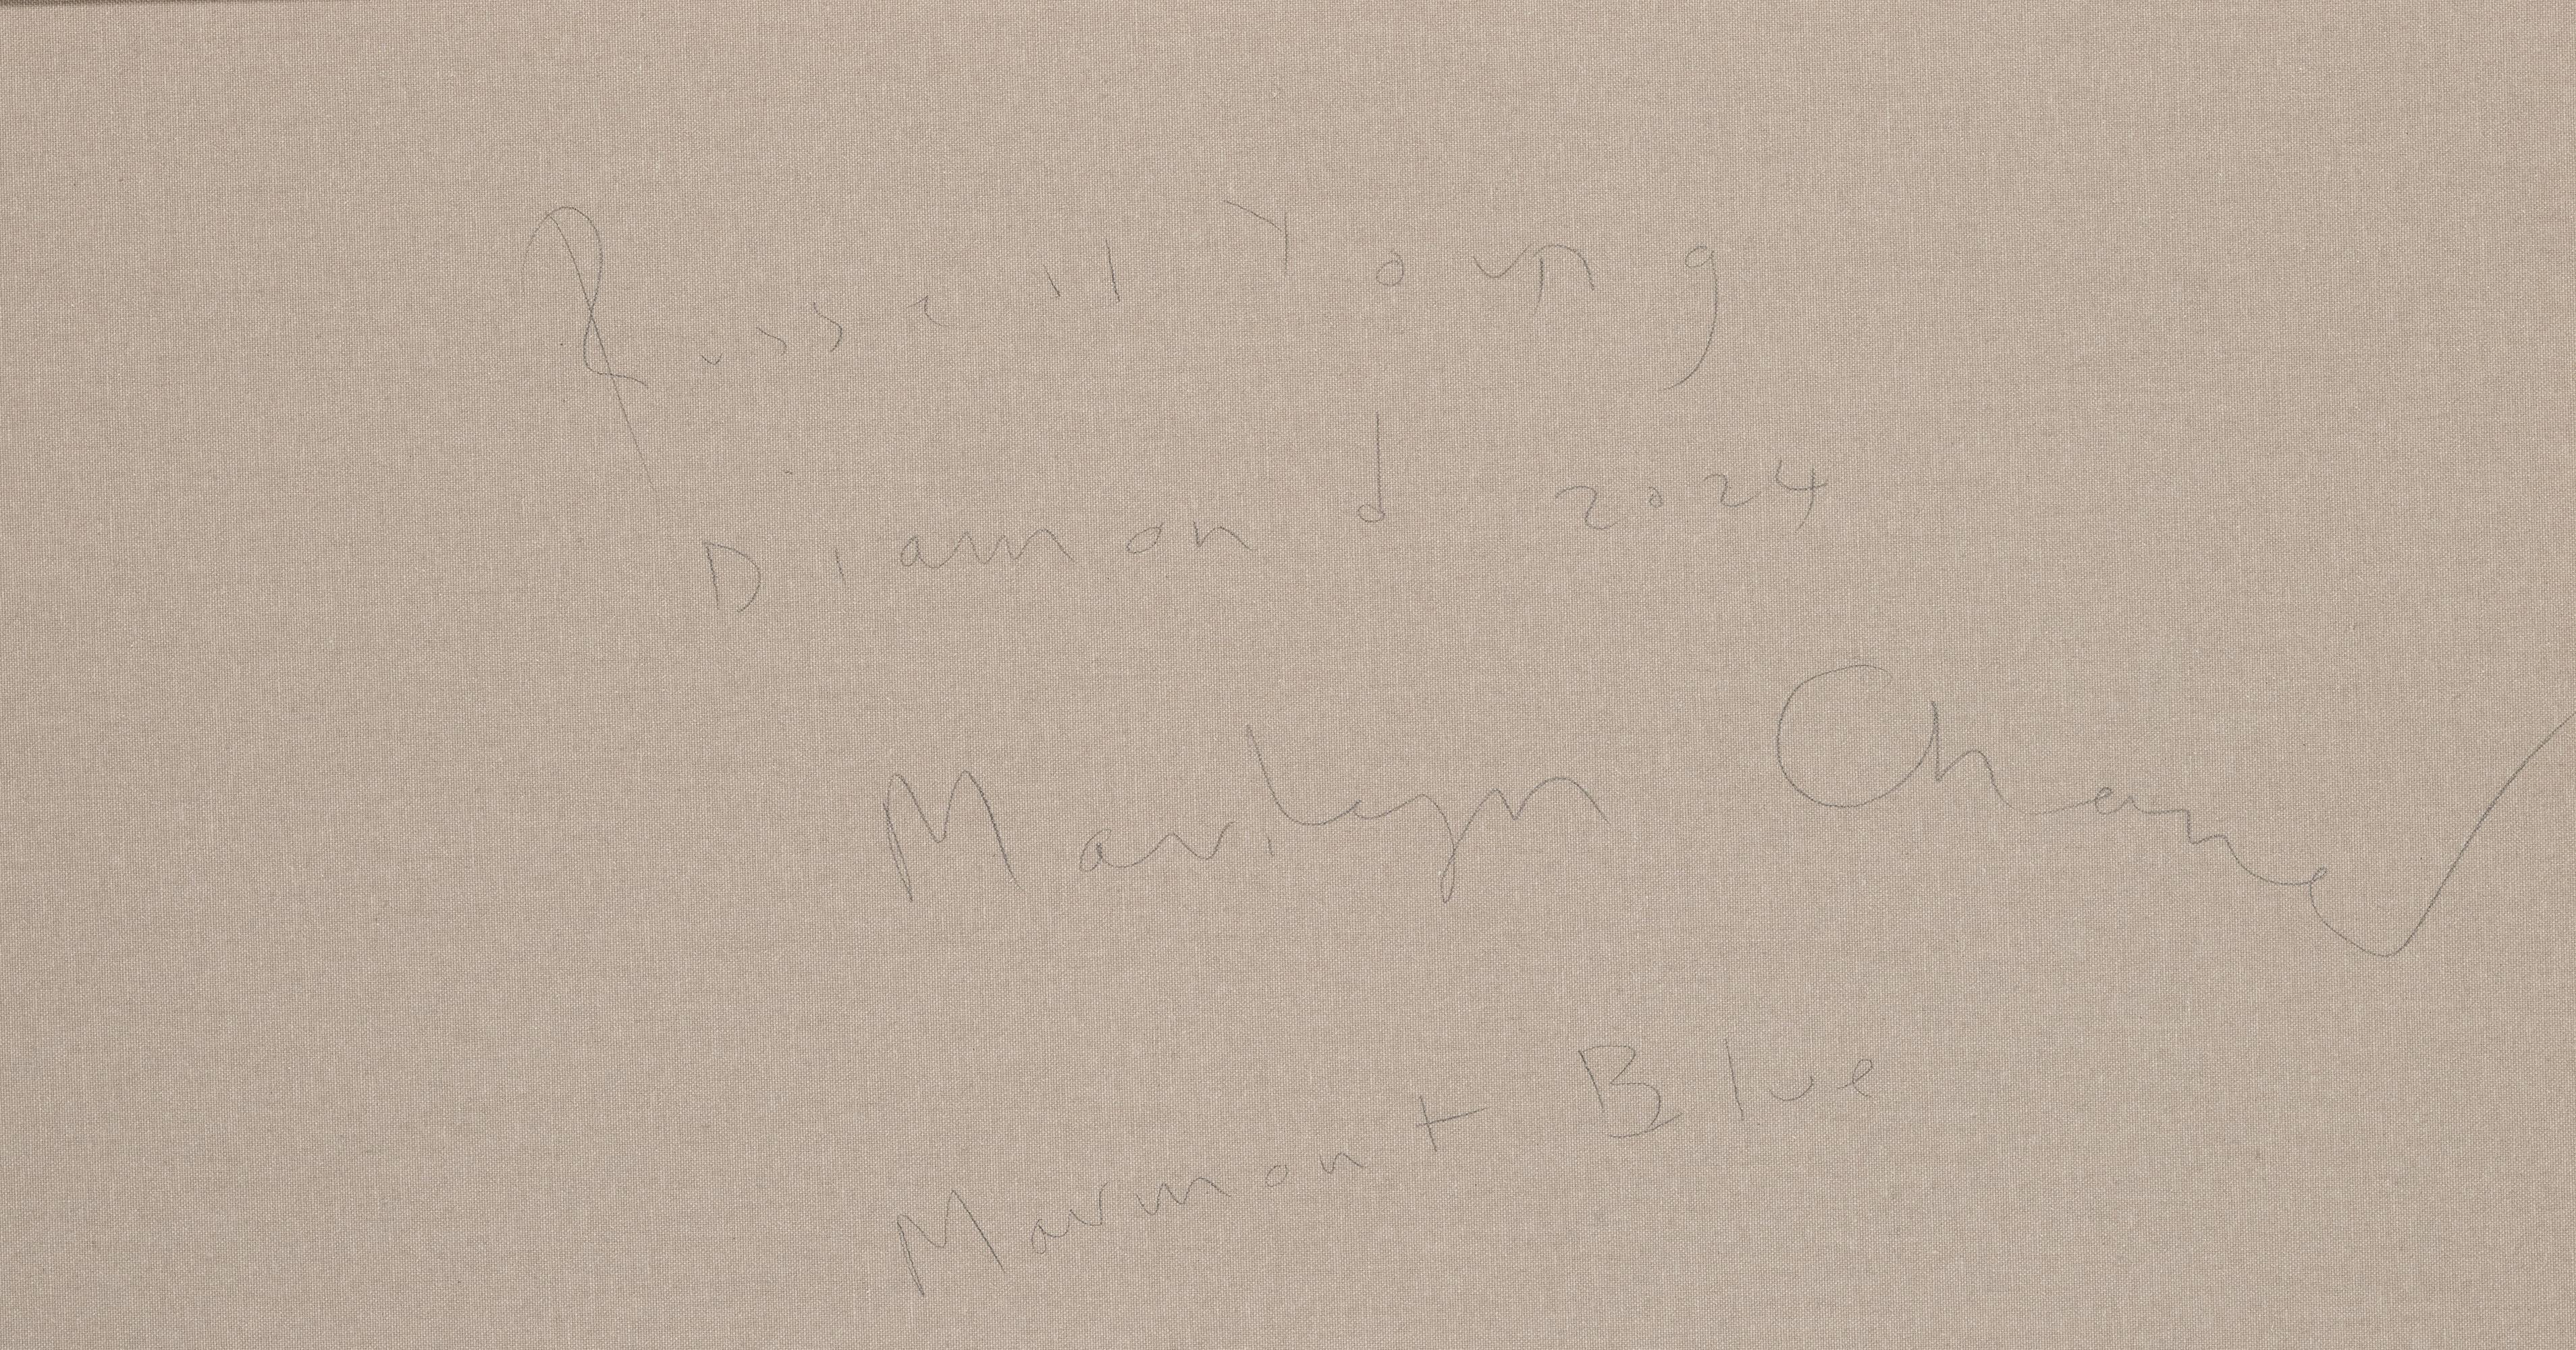 Russell Young
Diamond 2024
Marilyn Chanel
Marmont Blue